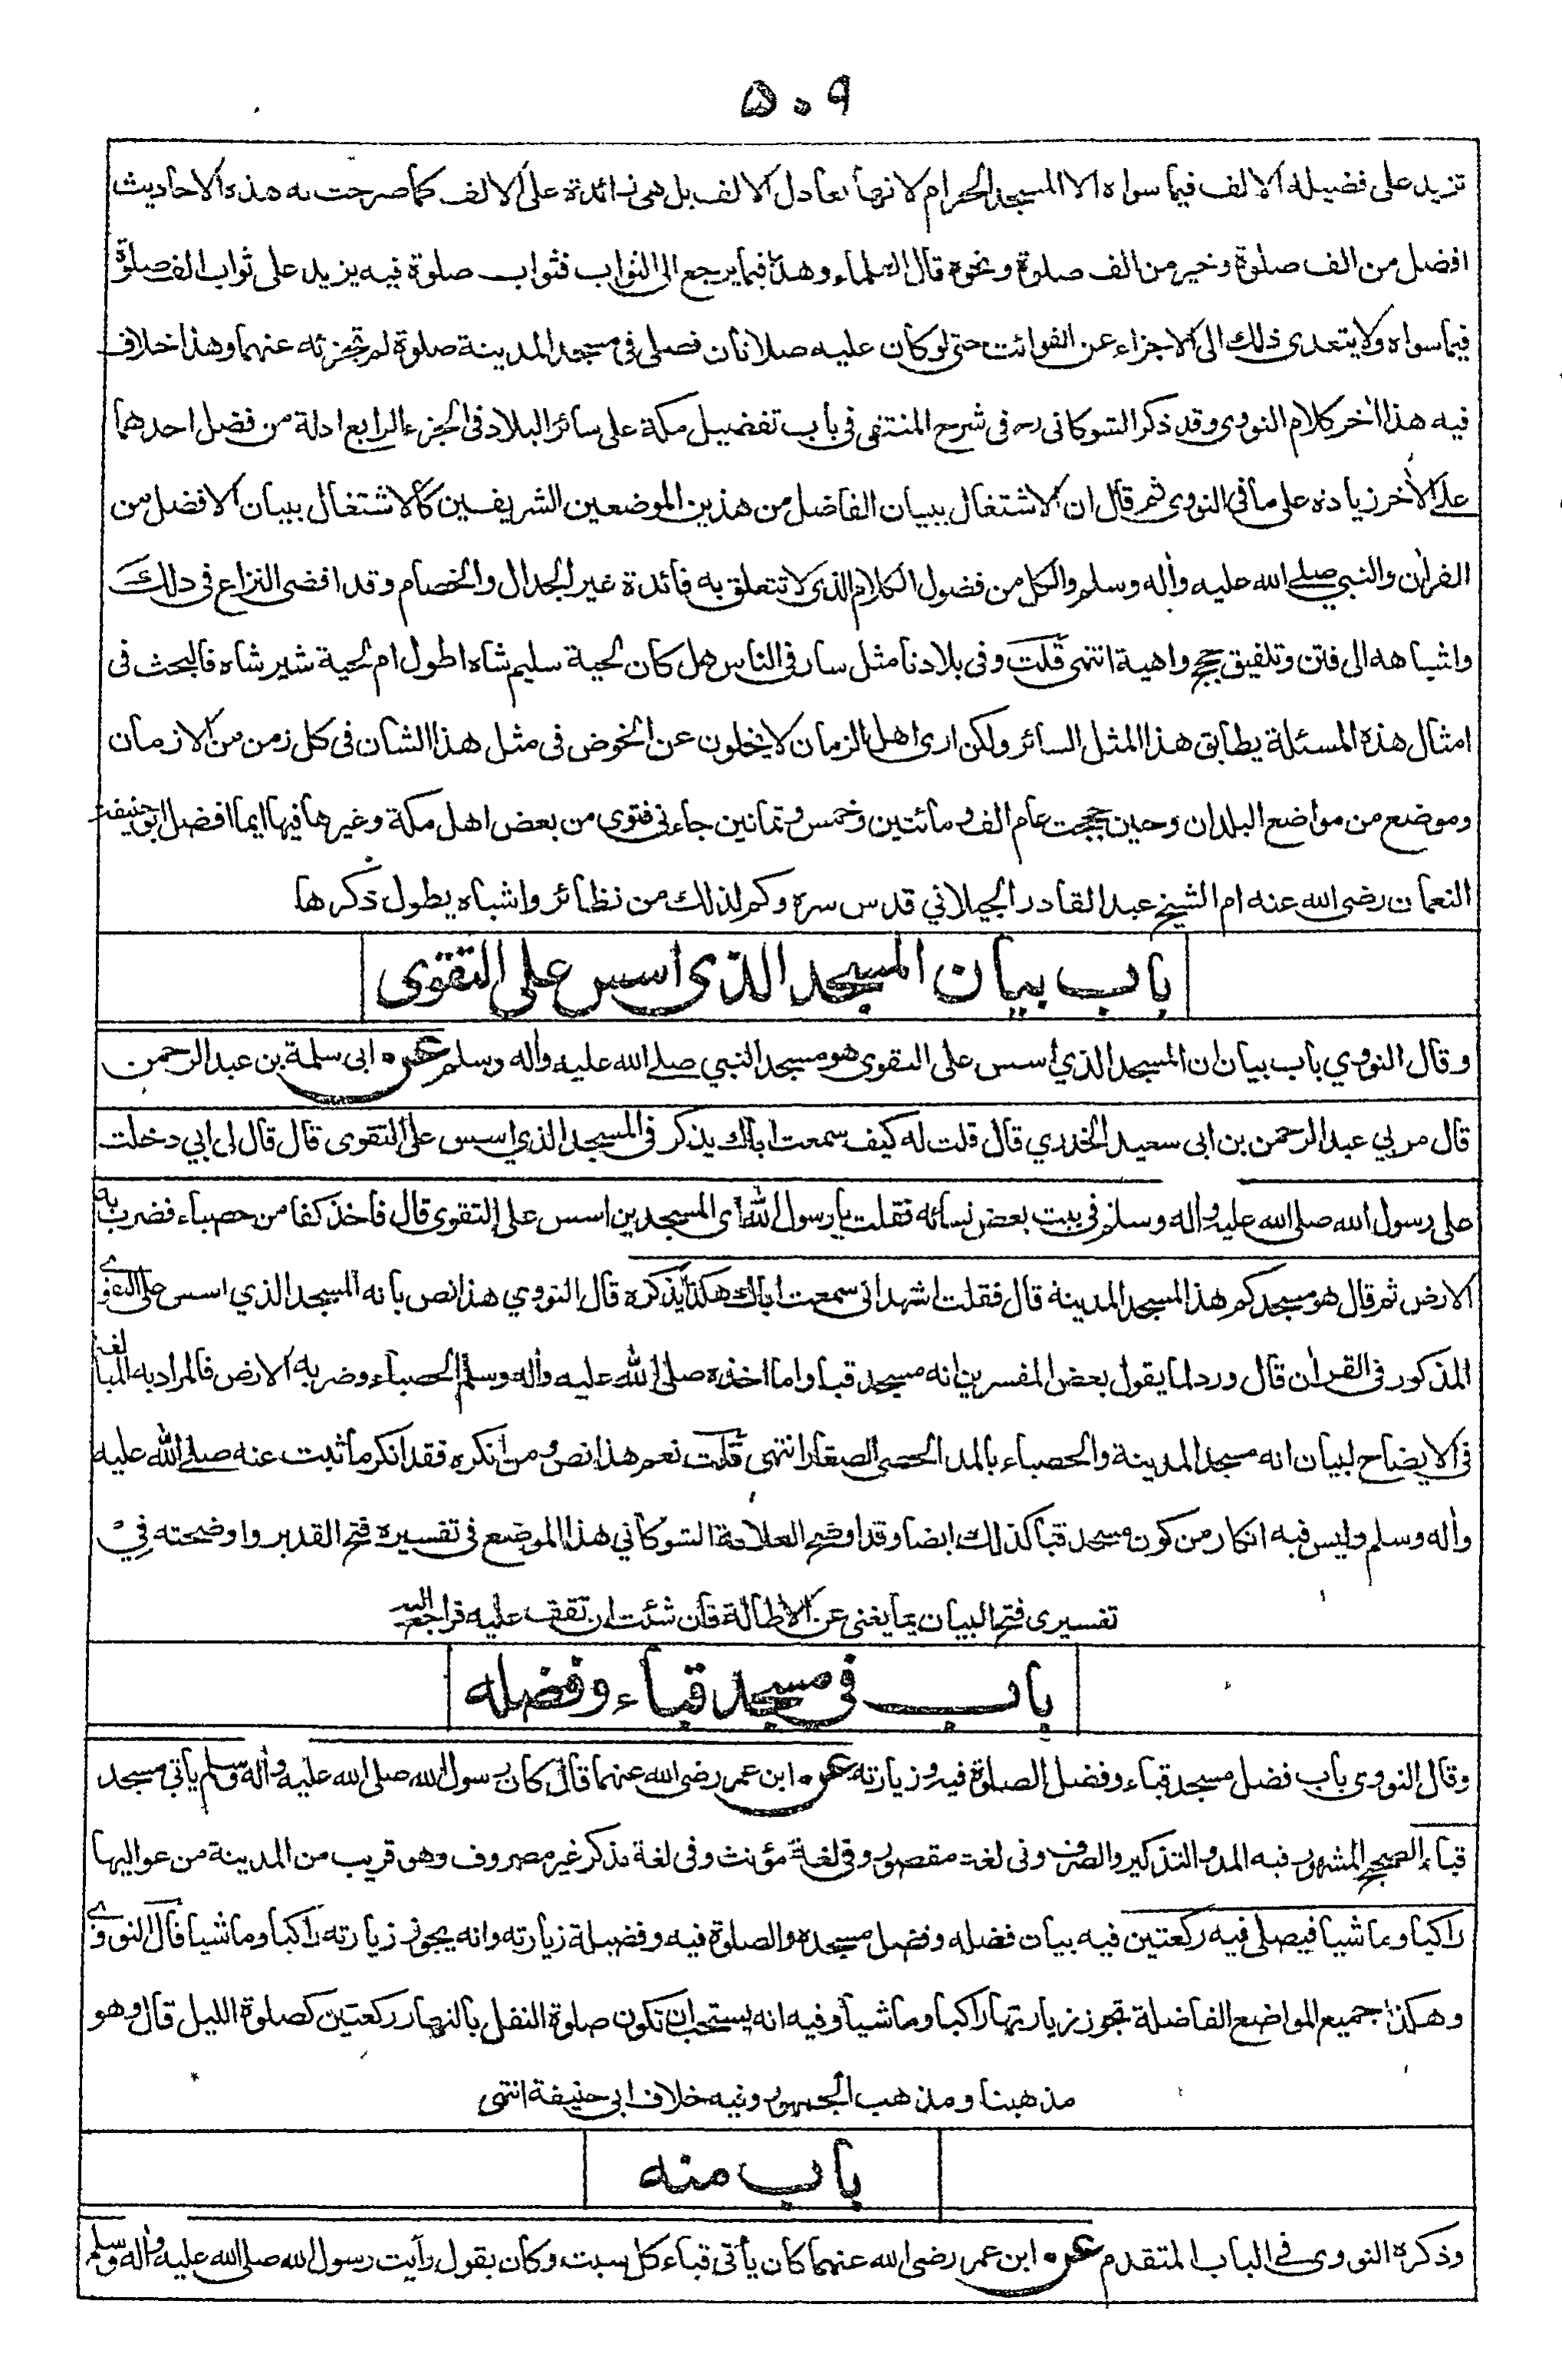 ۵۰۹
تزيد على فضيلة الالف فيما سواه الا المسجد الحرام لانها تعادل الالف بل هى زائدة على الالف كما صرحت به هذه الاحاديث
افضل من الف صلوة وخير من الف صلوة ونحوه قال العلماء وهذا فيما يرجع الى الثواب فثواب صلوة فيه يزيد على ثواب الف صلوة
فيما سواه ولا يتعدى ذلك الى الاجزاء عن الفوائت حتى لو كان عليه صلاتان فصلى فى مسجد المدينة صلوة لم تجزئه عنهما وهذا خلاف
فيه هذا اٰخر كلام النووى وقد ذكر الشوكانى رح فى شرح المنتقى فى باب تفضيل مكة على سائر البلاد فى الجزء الرابع ادلة من فضل احدهما
على الاٰخر زيادة على ما فى النووى ثم قال ان الاشتغال ببيان الفاضل من هذين الموضعين الشريفين كالاشتغال ببيان الافضل من
القراٰن والنبي صلے الله عليه واٰله وسلم والكل من فضول الكلام الذى لا تتعلق به فائدة غير الجدال والخصام وقد افضى النزاع فى ذلك
واشباهه الى فتن وتلفيق حجج واهية انتهى قلت وفى بلادنا مثل سار فى الناس هل كان لحية سليم شاه اطول ام لحية شير شاه فالبحث فى
امثال هذه المسئلة يطابق هذا المثل السائر ولكن ارى اهل الزمان لا يخلون عن الخوض فى مثل هذا الشان فى كل زمن من الازمان
وموضع من مواضع البلدان وحين حججت عام الف ومائتين وخمس وثمانين جاءنى فتوى من بعض اهل مكة وغيرها فيها ايما افضل ابو حنيفة
النعمان رضى الله عنه ام الشيخ عبد القادر الجيلاني قدس سره وكم لذلك من نظائر واشباه يطول ذكرها
باب بيان المسجد الذى اسس على التقوى
وقال النووي باب بيان ان المسجد الذي اسس على التقوى هو مسجد النبي صلے الله عليه واٰله وسلم عن ابى سلمة بن عبد الرحمن
قال مر بي عبد الرحمن بن ابى سعيد الخدري قال قلت له كيف سمعت اباك يذكر فى المسجد الذي اسس على التقوى قال قال لى ابي دخلت
على رسول الله صلى الله عليه واٰله وسلم فى بيت بعض نسائه فقلت يا رسول الله اى المسجدين اسس على التقوى قال فاخذ كفا من حصباء فضرب به
الارض ثم قال هو مسجدكم هذا المسجد المدينة قال فقلت اشهد انى سمعت اباك هكذا يذكره قال النووي هذا نص بانه المسجد الذي اسس على التقوے
المذكور فى القراٰن قال ورد لما يقول بعض المفسرين انه مسجد قبا واما اخذه صلى الله عليه واٰله وسلم الحصباء وضربه الارض فالمراد به المبالغة
فى الايضاح لبيان انه مسجد المدينة والحصباء بالمد الحصى الصغار انتهى قلت نعم هذا نص ومن انكره فقد انكر ما ثبت عنه صلے الله عليه
واٰله وسلم وليس فيه انكار من كون مسجد قبا كذلك ايضا وقد اوضح العلامة الشوكاني هذا الموضع فى تفسيره فتح القدير واوضحته في
تفسيرى فتح البيان بما يغنى عن الاطالة فان شئت ان تقف عليه فراجع اليه
باب فى مسجد قباء وفضله
وقال النووى باب فضل مسجد قباء وفضل الصلوة فيه وزيارته عن ابن عمر رضى الله عنهما قال كان رسول الله صلى الله عليه واٰله وسلم يأتي مسجد
قباء الصحيح المشهور فيه المد والتذكير والصرف وفى لغة مقصور وفى لغة مؤنث وفى لغة مذكر غير مصروف وهو قريب من المدينة من عواليها
راكبا وماشيا فيصلى فيه ركعتين فيه بيان فضله وفضل مسجده والصلوة فيه وفضيلة زيارته وانه يجوز زيارته راكبا وماشيا قال النووے
وهكذا جميع المواضع الفاضلة تجوز زيارتها راكبا وماشيا وفيه انه يستحب ان تكون صلوة النفل بالنهار ركعتين كصلوة الليل قال وهو
مذهبنا ومذهب الجمهور وفيه خلاف ابى حنيفة انتهى
باب منه
وذكره النووى فے الباب المتقدم عن ابن عمر رضى الله عنهما كان يأتى قباء كل سبت وكان يقول رأيت رسول الله صلى الله عليه واٰله وسلم